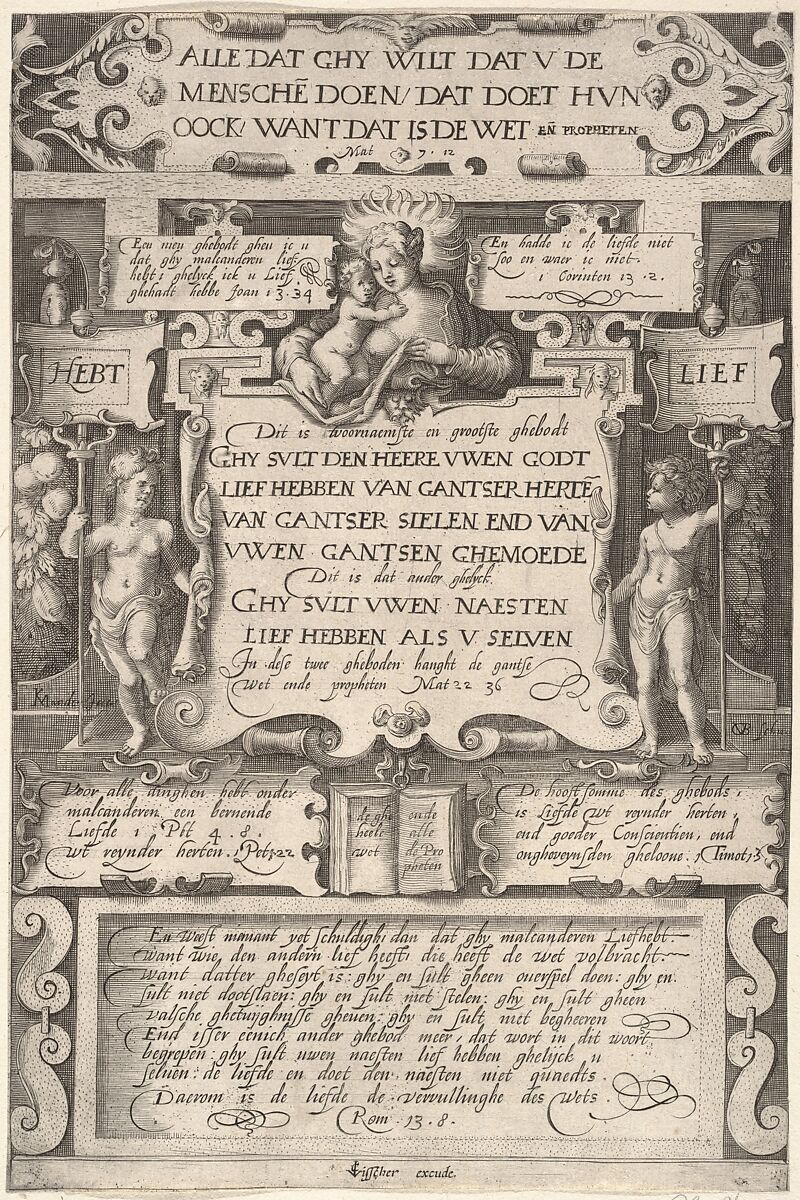 ALLE DAT GHY WILT DAT V DE
MENSCHẼ DOEN/ DAT DOET HVN
OOCK/ WANT DAT IS DE WET EÑ PROPHETEN
Mat 7 . 12
Een nieu ghebodt gheu ic u
dat ghy malcanderen lief
hebt : ghelyck ick u Lief
ghehadt hebbe Joan 13.34
En hadde ic de liefde niet
soo en waer ic niet.
1 Corinten 13 . 2 .
HEBT
LIEF
Dit is voornaemste en grootste ghebodt
GHY SVLT DEN HEERE VWEN GODT
LIEF HEBBEN VAN GANTSER HERTẼ
VAN GANTSER SIELEN END VAN
VWEN GANTSEN GHEMOEDE
Dit is dat ander ghelyck.
GHY SVLT VWEN NAESTEN
LIEF HEBBEN ALS V SELVEN
In dese twee gheboden hanght de gantse
Wet ende propheten Mat 22 36
Voor alle dinghen hebt onder
malcanderen een bernende
Liefde 1 . Pet 4 . 8 .
wt reynder herten . 1 Pet 1 22
de ghe
heele
wet
ende
alle
de Pro
pheten
De hooft somme des ghebods ,
is Liefde wt reynder herten ,
end goeder Conscientien , end
ongheveynsden gheloove . 1 Timot 1 5
En Weest niemant yet schuldigh : dan dat ghy malcanderen Liefhebt .
Want wie den andern lief heeft : die heeft de wet volbracht .
Want datter gheseyt is : ghy en sult gheen overspel doen : ghy en
sult niet dootslaen : ghy en sult niet stelen : ghy en sult gheen
valsche ghetuyghnisse gheven : ghy en sult niet begheeren
End isser eenich ander ghebod meer , dat wort in dit woort
begrepen : ghy sult uwen naesten lief hebben ghelijck u
selven : de liefde en doet den naesten niet quaedts .
Daerom is de liefde de vervullinghe des Wets .
Rom . 13 . 8 .
Visscher excude .